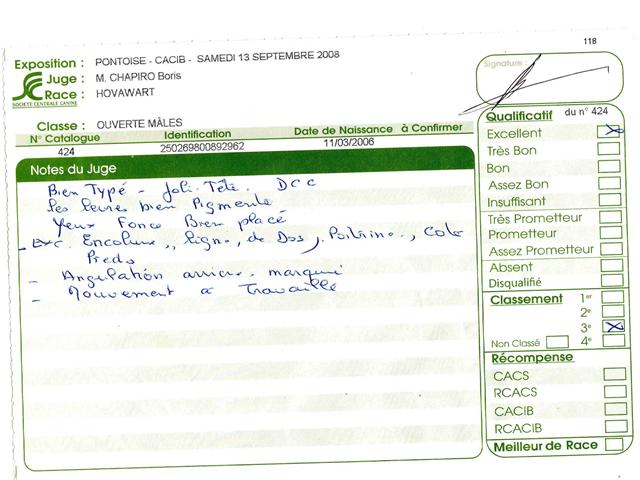 118
Exposition : PONTOISE - CACIB - SAMEDI 13 SEPTEMBRE 2008
Juge : M. CHAPIRO Boris
Race : HOVAWART
SOCIETE CENTRALE CANINE
Classe : OUVERTE MÂLES
N° Catalogue Identification Date de Naissance à Confirmer
424 250269800892962 11/03/2006
Notes du Juge
Bien Typé - Joli Tête. DCC
les levres bien Pigmenté
Yeux Foncé Bien placé
- Exc. Encolure, ligne, de Dos, Poitrine, Cote
Pieds
- Angulation arriere. marqui
- Mouvement a Travaille
Signature :
Qualificatif du n° 424
Excellent X
Très Bon
Bon
Assez Bon
Insuffisant
Très Prometteur
Prometteur
Assez Prometteur
Absent
Disqualifié
Classement 1er
2e
3e X
Non Classé 4e
Récompense
CACS
RCACS
CACIB
RCACIB
Meilleur de Race